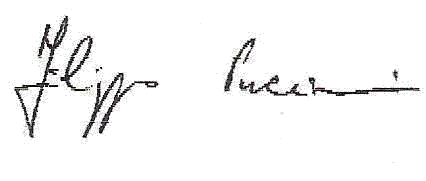 Filippo Puccini